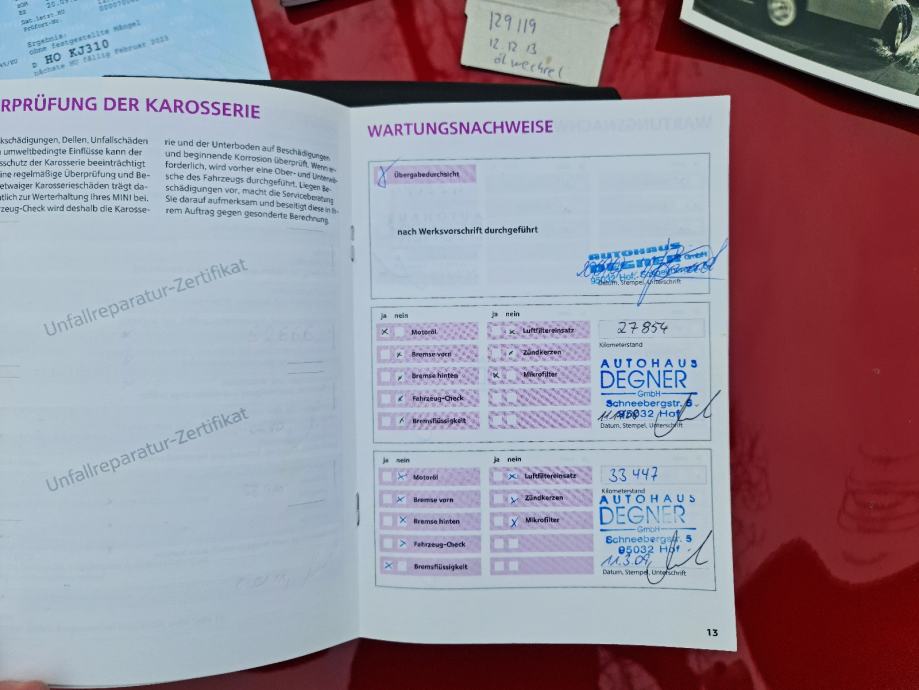 Ergebnis:
ohne festgestellte Mängel
D HO KJ310
nächste HU fällig Februar 2023
129119
12.12.13
ölwechsel
RPRÜFUNG DER KAROSSERIE
kschädigungen, Dellen, Unfallschäden
umweltbedingte Einflüsse kann der
sschutz der Karosserie beeinträchtigt
ine regelmäßige Überprüfung und Be-
etwaiger Karosserieschäden trägt da-
tlich zur Werterhaltung Ihres MINI bei.
zeug-Check wird deshalb die Karosse-
rie und der Unterboden auf Beschädigungen
und beginnende Korrosion überprüft. Wenn er-
forderlich, wird vorher eine Ober- und Unterwä-
sche des Fahrzeugs durchgeführt. Liegen Be-
schädigungen vor, macht die Serviceberatung
Sie darauf aufmerksam und beseitigt diese in Ih-
rem Auftrag gegen gesonderte Berechnung.
Unfallreparatur-Zertifikat
Unfallreparatur-Zertifikat
WARTUNGSNACHWEISE
Übergabedurchsicht
nach Werksvorschrift durchgeführt
AUTOHAUS
DEGNER GmbH
95032 Hof
Datum, Stempel, Unterschrift
ja nein
Motoröl
Bremse vorn
Bremse hinten
Fahrzeug-Check
Bremsflüssigkeit
ja nein
Luftfiltereinsatz
Zündkerzen
Mikrofilter
27854
Kilometerstand
AUTOHAUS
DEGNER
GmbH
Schneebergstr. 5
95032 Hof
Datum, Stempel, Unterschrift
ja nein
Motoröl
Bremse vorn
Bremse hinten
Fahrzeug-Check
Bremsflüssigkeit
ja nein
Luftfiltereinsatz
Zündkerzen
Mikrofilter
33 447
Kilometerstand
AUTOHAUS
DEGNER
GmbH
Schneebergstr. 5
95032 Hof
11.3.09
Datum, Stempel, Unterschrift
13